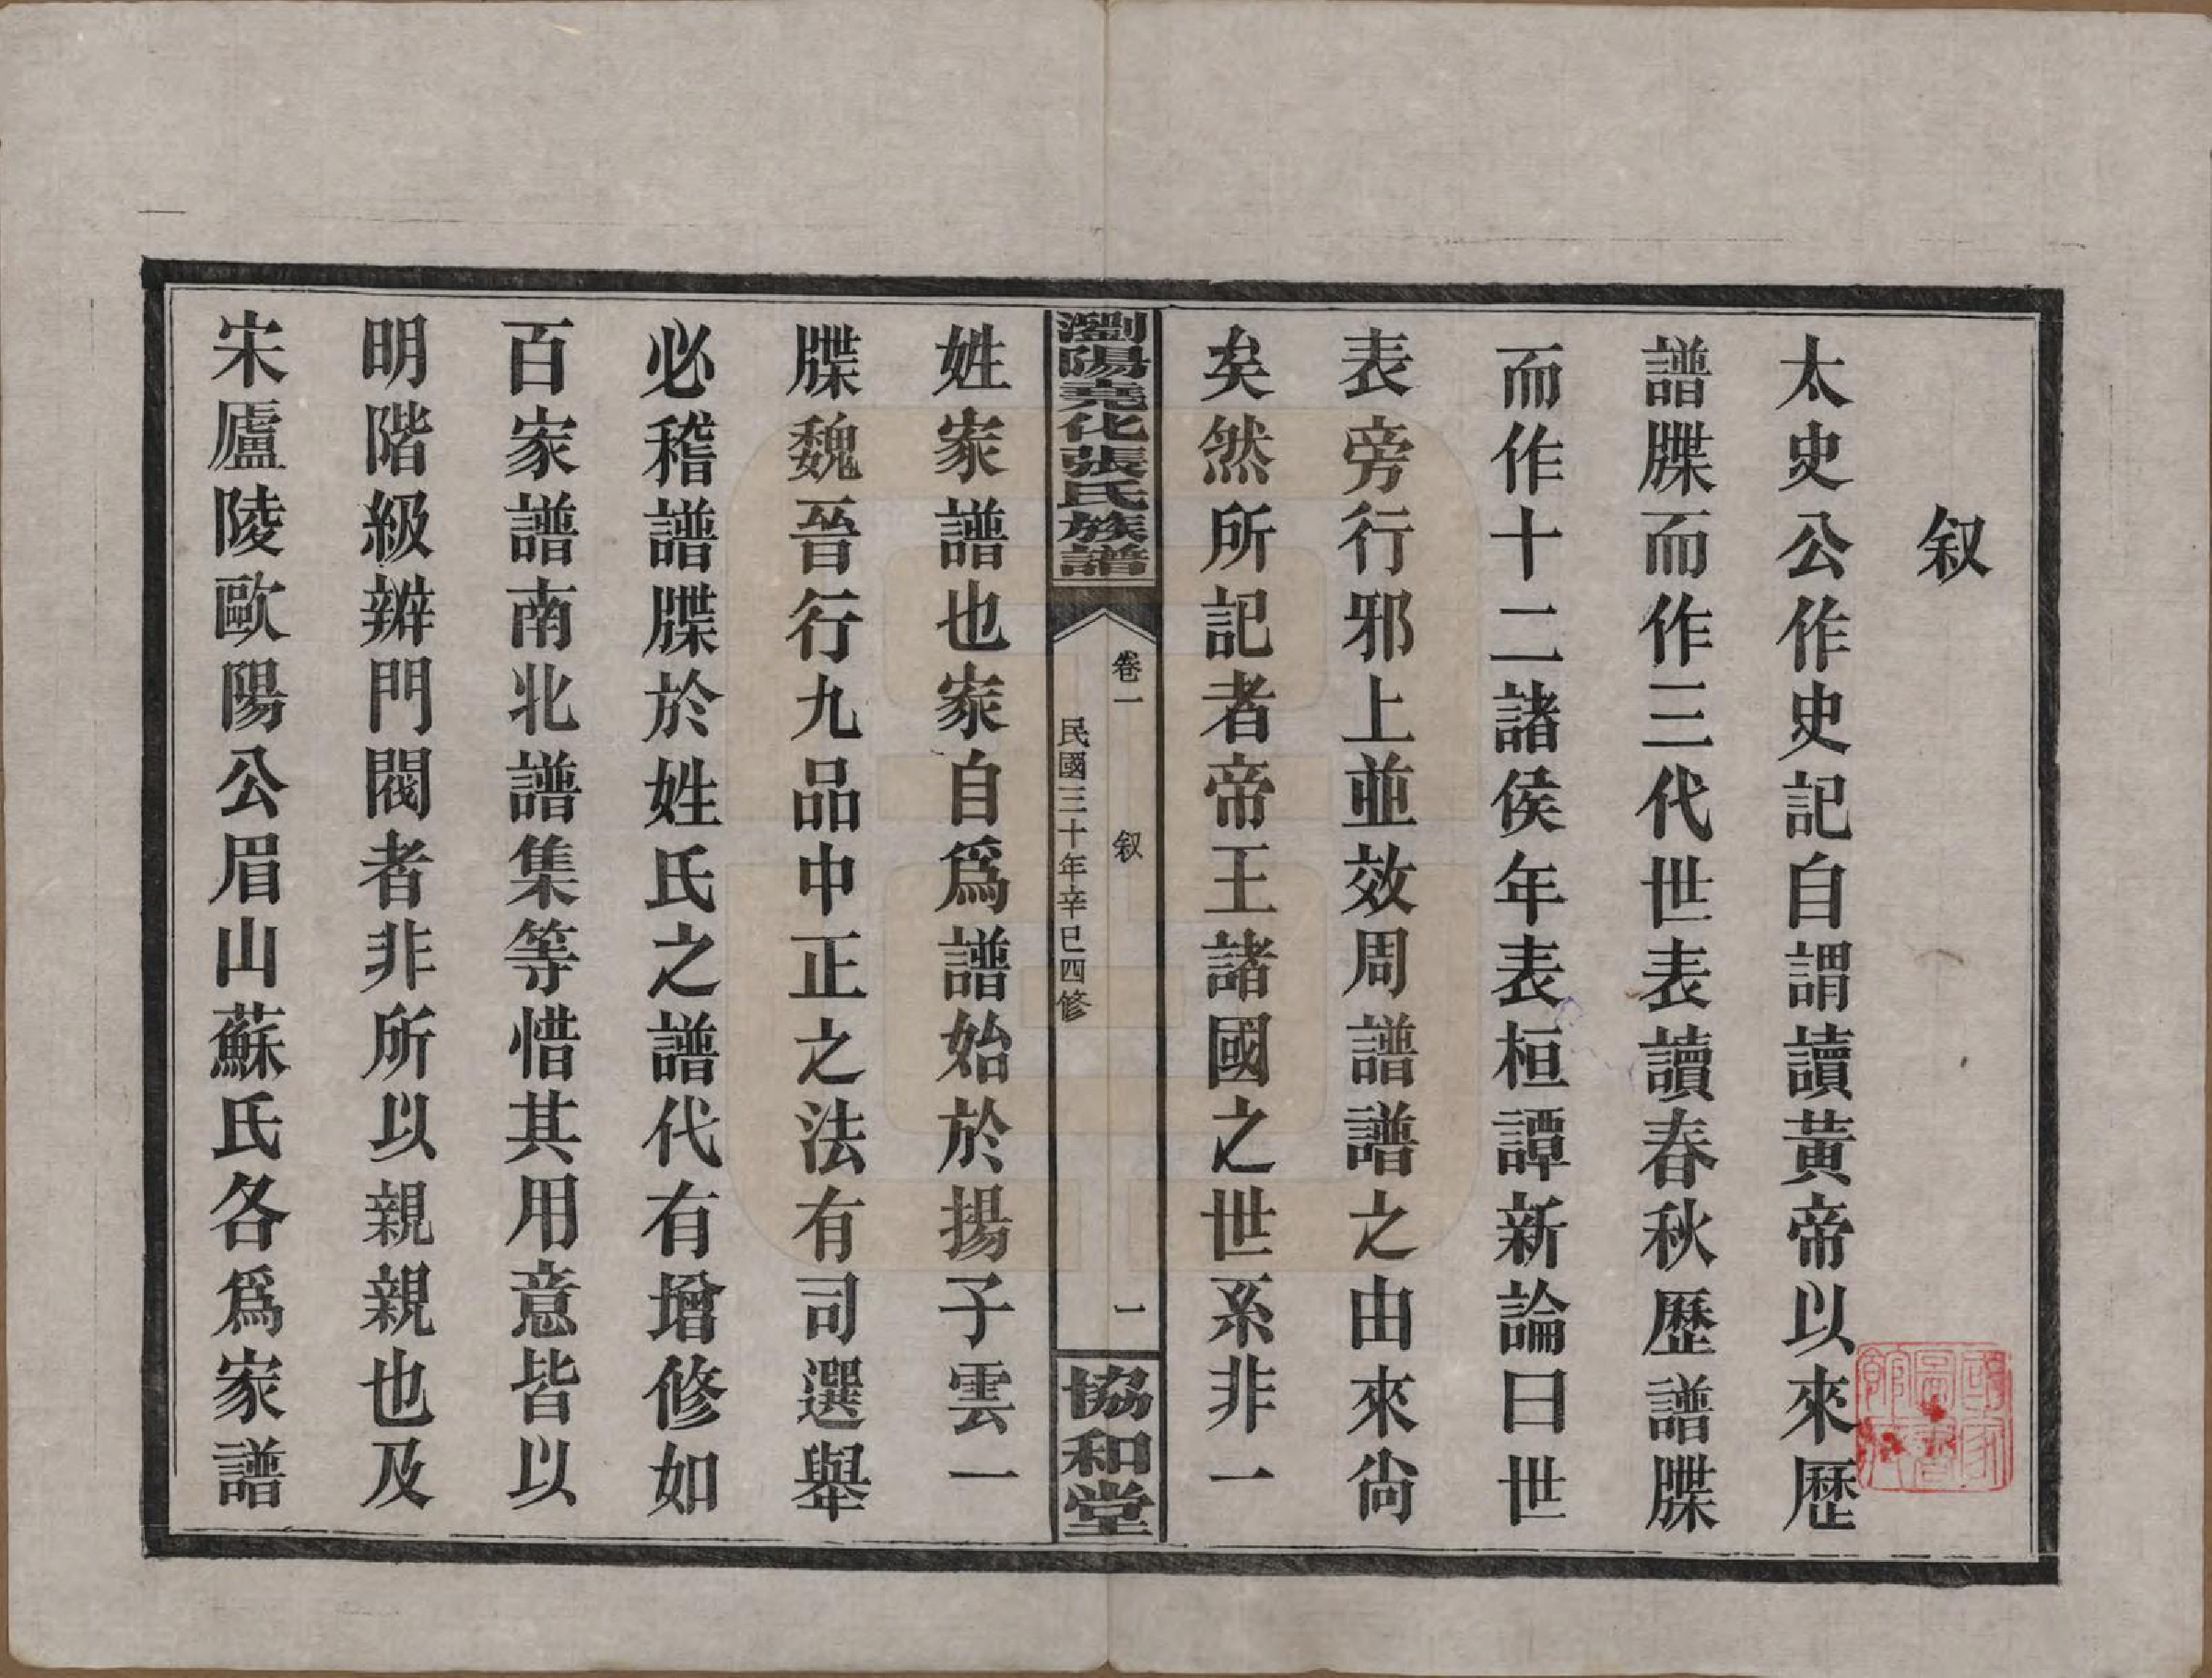 叙
太史公作史記自謂讀黃帝以來歷
譜牒而作三代世表讀春秋歷譜牒
而作十二諸侯年表桓譚新論曰世
表旁行邪上並效周譜譜之由來尙
矣然所記者帝王諸國之世系非一
瀏陽堯化張氏族譜
卷一
叙
一
民國三十年辛巳四修
協和堂
姓家譜也家自爲譜始於揚子雲一
牒魏晉行九品中正之法有司選舉
必稽譜牒於姓氏之譜代有增修如
百家譜南北譜集等惜其用意皆以
明階級辨門閥者非所以親親也及
宋廬陵歐陽公眉山蘇氏各爲家譜
國家圖書館藏